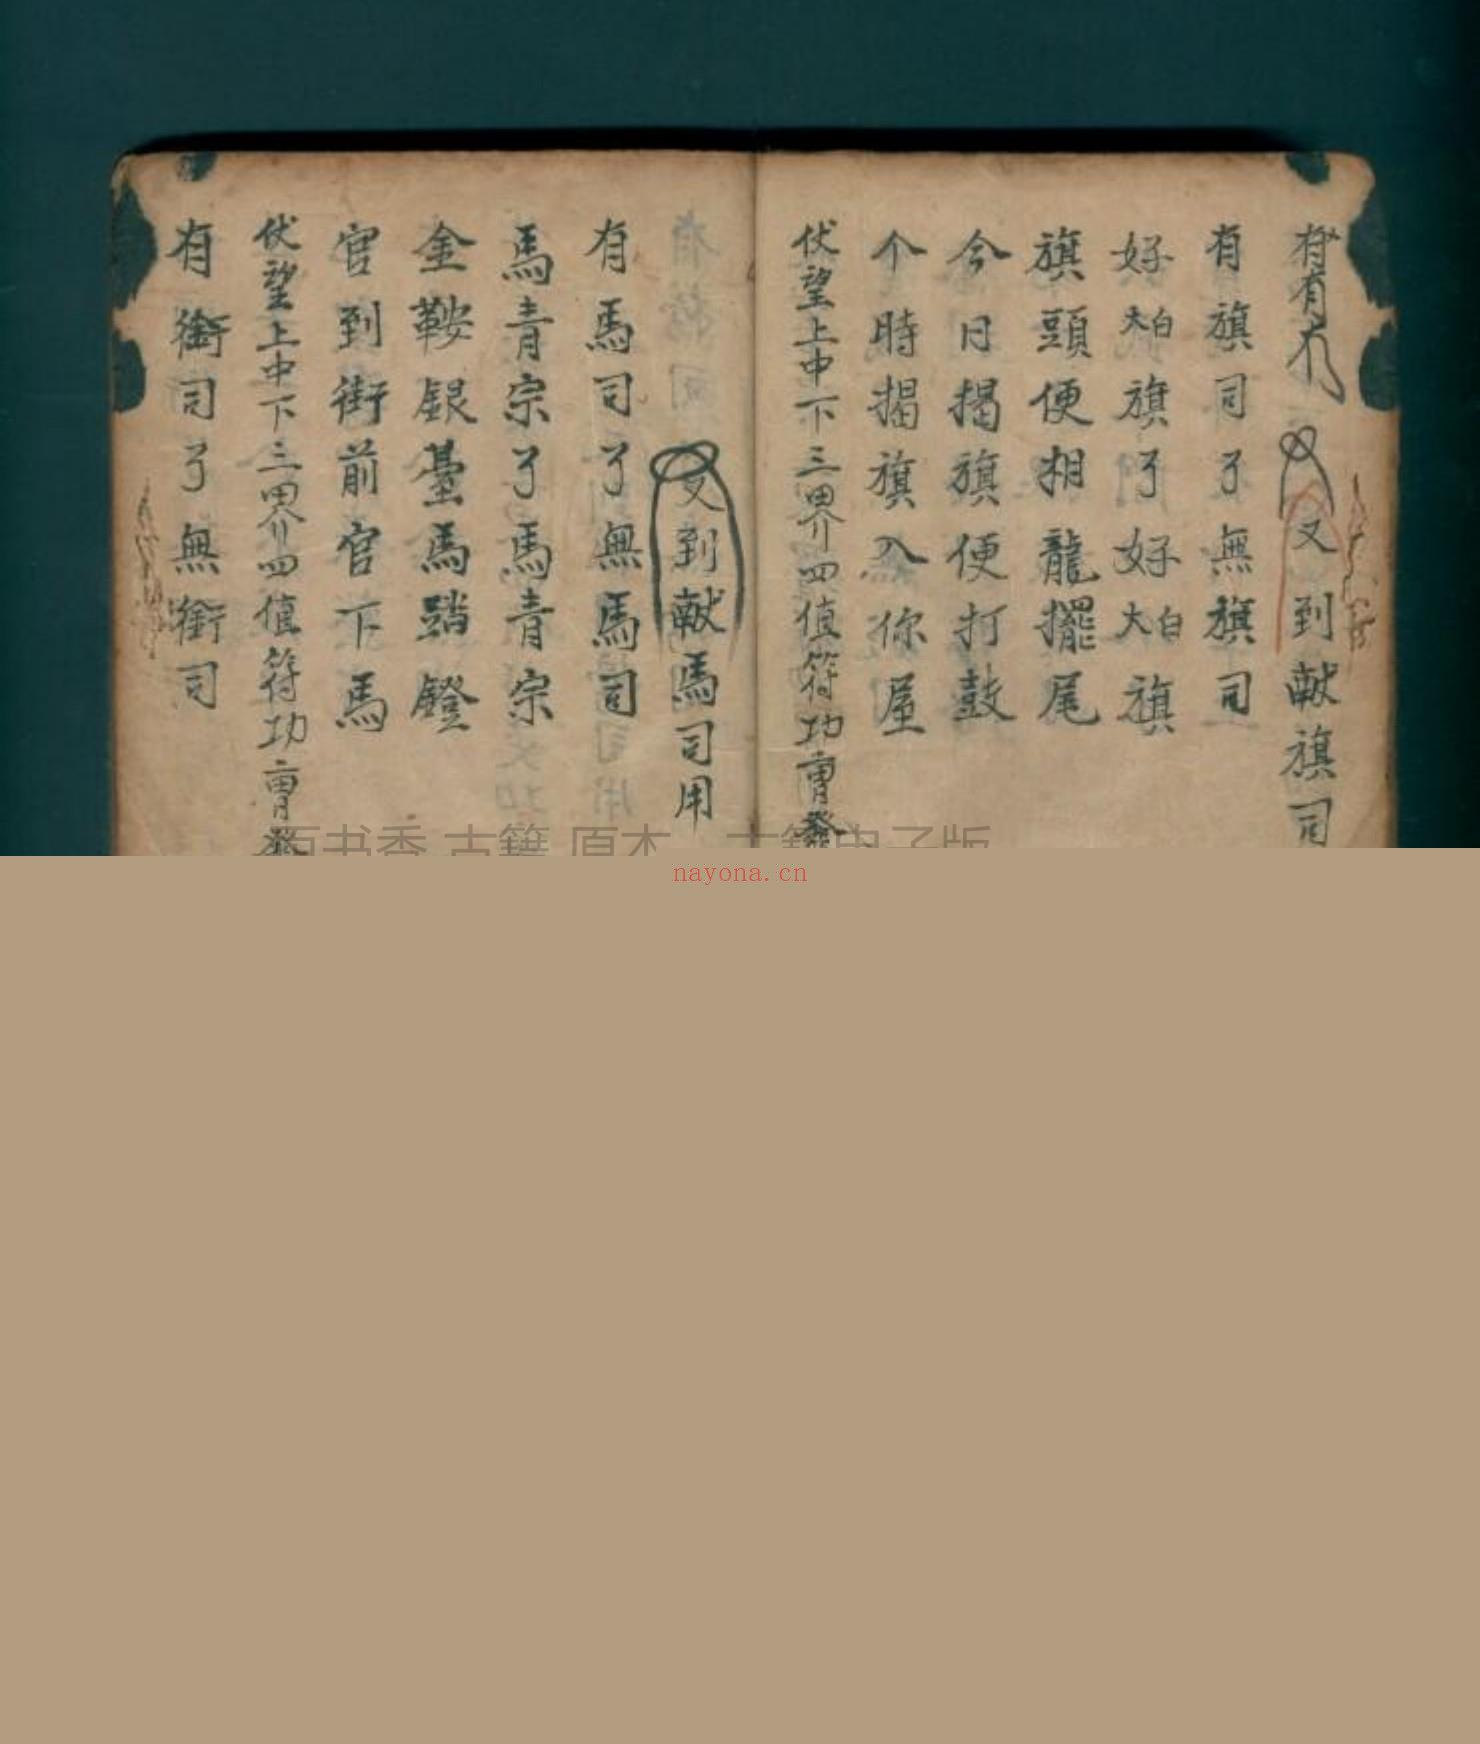 有有
又到献旗司
有旗司了無旗司
好大白旗了好大白旗
旗頭便相龍擺尾
今日揭旗便打鼓
个時揭旗入你屋
伏望上中下三界四值符功曹發
又到献馬司用
有馬司了無馬司
馬青宗了馬青宗
金鞍銀臺馬踏鐙
官到街前官下馬
伏望上中下三界四值符功曹發
有衙司了無衙司
nayona.cn